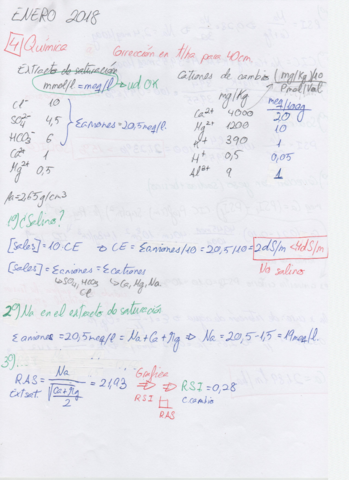 ENERO 2018
4 Química
Corrección en t/ha para 40cm
Extracto de saturación
mmolc/l = meq/l → ud OK
Cationes de cambio
(mg/Kg)/10
Pmol/Val
mg/Kg
meq/100g
Cl⁻ 10
SO₄²⁻ 4,5
HCO₃⁻ 6
Σaniones = 20,5 meq/l
Ca²⁺ 1
Mg²⁺ 0,5
Ca²⁺ 4000 20
Mg²⁺ 1200 10
K⁺ 390 1
H⁺ 0,5 0,05
Al³⁺ 9 1
1º) ¿Salino?
[sales] = 10·CE → CE = Σaniones/10 = 20,5/10 = 2dS/m < 4dS/m
[sales] = Σaniones = Σcationes
No salino
SO₄, HCO₃
Cl
Ca, Mg, Na
2º) Na en el extracto de saturación
Σaniones = 20,5 meq/l = Na + Ca + Mg ⇒ Na = 20,5 - 1,5 = 19 meq/l.
3º)...
RAS = Na / √((Ca+Mg)/2) = 21,93
Extsat
Gráfica
RSI
RAS
RSI = 0,28
c.cambio